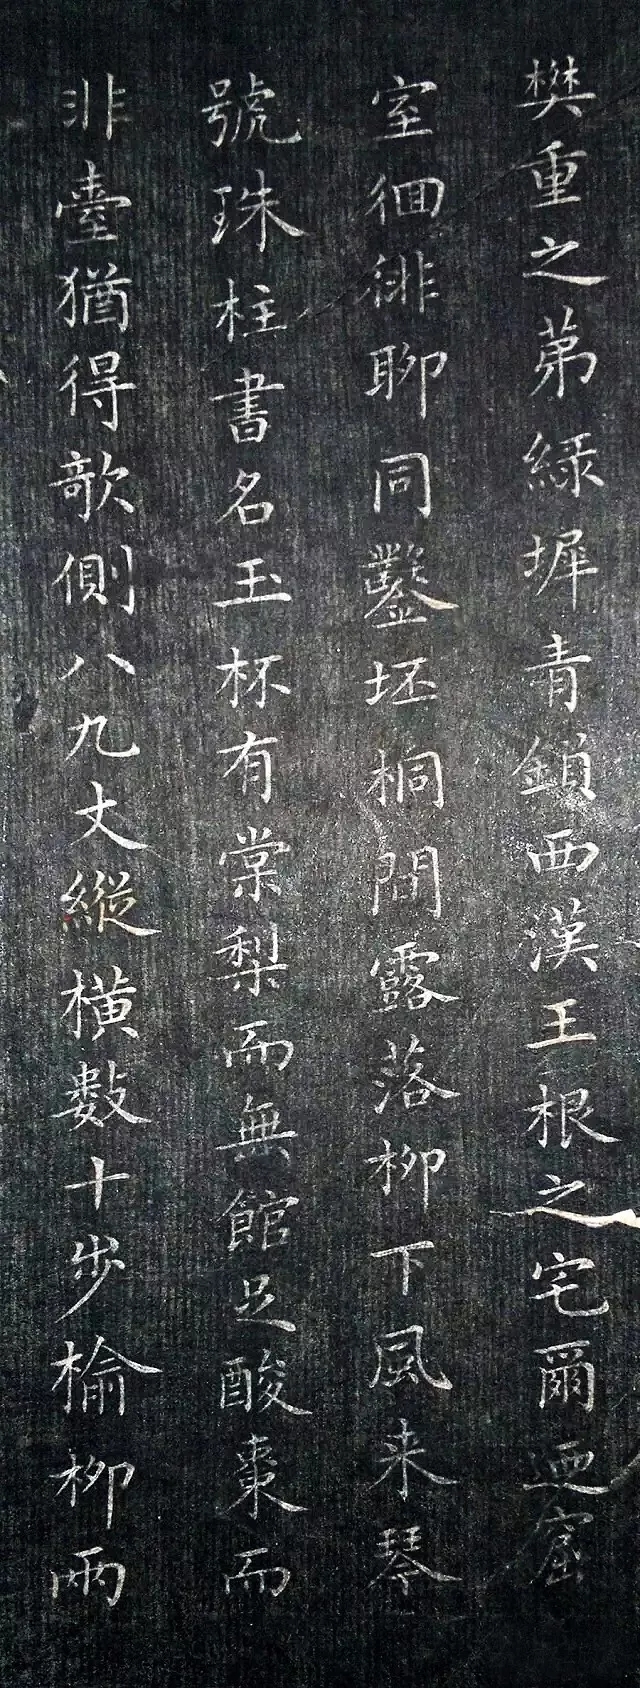 樊重之弟綠墀青鎖西漢王根之宅爾迺窟
室徊徘聊同鑿坯桐間露落柳下風来琴
號珠柱書名玉杯有棠梨而無館足酸棗而
非臺猶得欹側八九丈縱橫數十步榆柳兩